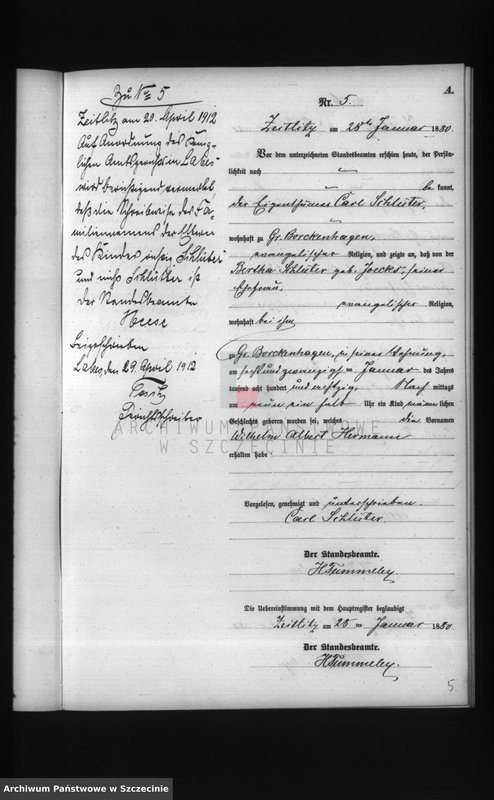 Zu No 5
Zeitlitz am 20. April 1912
Auf Anordnung des König-
lichen Amtsgerichts in Labes
wird berichtigend vermerkt,
daß die Schreibweise des Fa-
miliennamens der Eltern
des Kindes "Schlüter"
und nicht Schlütter ist
Der Standesbeamte
Heese
Beigeschrieben
Labes, den 29. April 1912
Gerichtsschreiber
A.
Nr. 5.
Zeitlitz am 28ten Januar 1880.
Vor dem unterzeichneten Standesbeamten erschien heute, der Persön-
lichkeit nach
be kannt,
der Eigenthümer Carl Schlüter,
wohnhaft zu Gr. Borckenhagen,
evangelischer Religion, und zeigte an, daß von der
Bertha Schlüter geb. Joecks, seiner
Ehefrau,
evangelischer Religion,
wohnhaft bei ihm,
zu Gr. Borckenhagen, in seiner Wohnung,
am sechsundzwanzigsten Januar des Jahres
tausend acht hundert und achtzig, Nach mittags
um neun ein halb Uhr ein Kind männlichen
Geschlechts geboren worden sei, welches die Vornamen
Wilhelm Albert Hermann
erhalten habe
Vorgelesen, genehmigt und unterschrieben.
Carl Schlüter
Der Standesbeamte.
H Tummeley.
Die Uebereinstimmung mit dem Hauptregister beglaubigt
Zeitlitz am 28 ten Januar 1880.
Der Standesbeamte.
H Tummeley.
5
ARCHIWUM PAŃSTWOWE
W SZCZECINIE
Archiwum Państwowe w Szczecinie